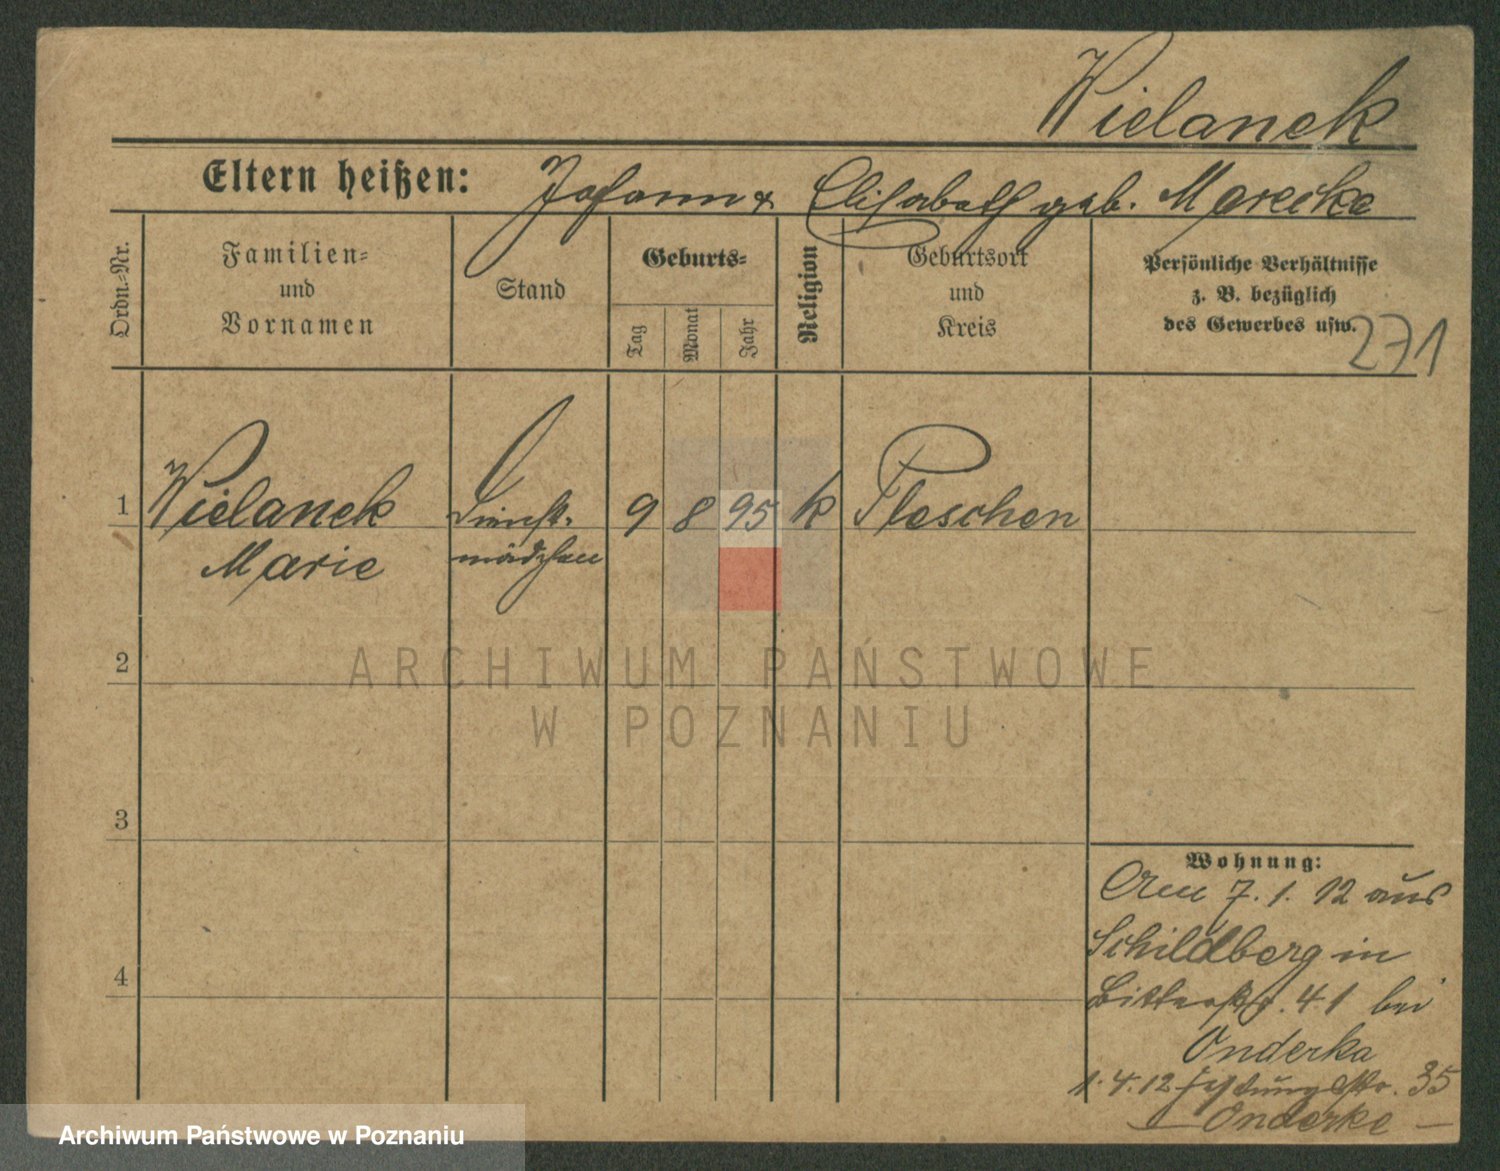 Wielanek
Eltern heißen: Johann & Elisabeth geb. Marecka
Ordn.-Nr.
Familien-
und
Vornamen
Stand
Geburts-
Tag
Monat
Jahr
Religion
Geburtsort
und
Kreis
Persönliche Verhältnisse
z. B. bezüglich
des Gewerbes usw.
271
1 Wielanek Dienst- 9 8 95 k Pleschen
Marie mädchen
2
ARCHIWUM PAŃSTWOWE
W POZNANIU
3
Wohnung:
Am 7.1.12 aus
Schildberg in
4
41 bei
Onderka
1.4.12 str. 35
— Onderke —
Archiwum Państwowe w Poznaniu